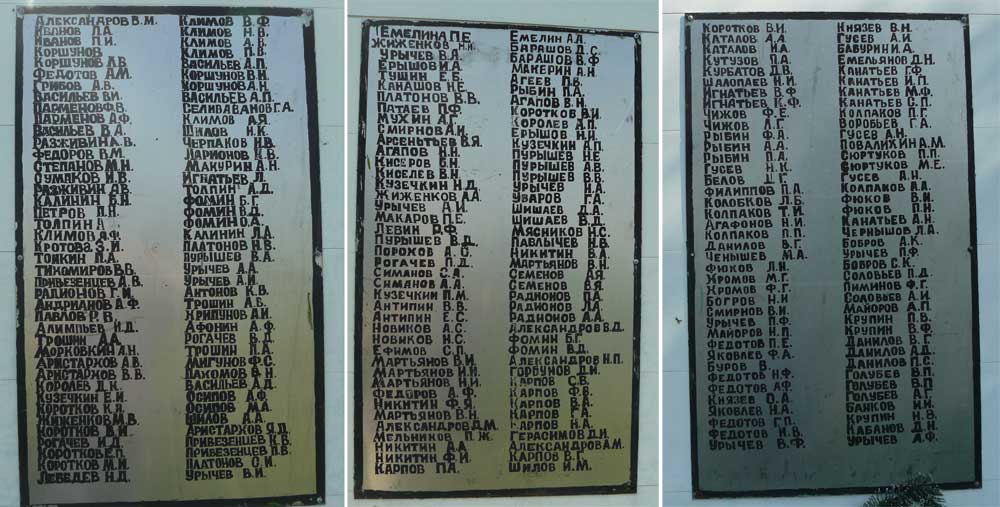 Александров В.М.
Иванов Л.А.
Иванов П.И.
Коршунов
Коршунов Л.В.
Федотов А.М.
Грибов А.В.
Васильев В.И.
Парменов Ф.В.
Парменов А.Ф.
Васильев В.А.
Разживин А.В.
Федоров В.М.
Степанов М.Н.
Сумаков И.В.
Разживин А.В.
Калинин В.Н.
Петров П.Н.
Толпин А
Климов А.Ф.
Кротова З.И.
Тонкин П.А.
Тихомиров В.В.
Привезенцев А.В.
Радионов Г.М.
Андрианов А.Ф.
Павлов Р.В.
Алимпьев И.Д.
Трошин А.А.
Морковкин А.Н.
Аристархов А.В.
Аристархов В.В.
Королев Д.К.
Кузечкин Е.И.
Коротков К.Я.
Жиженков М.В.
Коротков И.И.
Рогачев И.Д.
Коротков Е.П.
Коротков М.И.
Лебедев Н.Д.
Климов В.Ф.
Климов Н.В.
Климов А.В.
Климов П.В.
Васильев А.П.
Коршунов В.Н.
Коршунов А.Н.
Васильев А.П.
Селиваванов Г.А.
Климов А.Я.
Шилов И.К.
Черпаков Н.В.
Ларионов Н.В.
Макурин А.Н.
Игнатьев Л.
Толпин А.Д.
Фомин Б.Г.
Фомин В.Д.
Фомин О.А.
Калинин Л.А.
Платонов Н.В.
Пурышев В.А.
Урычев А.А.
Урычев А.И.
Антонов К.В.
Трошин А.Б.
Хрипунов А.И.
Афонин А.Ф.
Рогачев В.Д.
Трошин П.А.
Мигунов Ф.С.
Дакомов В.Н.
Васильев А.Д.
Осипов А.Ф.
Осипов М.А.
Шилов А.А.
Аристархов Я.Д.
Привезенцев К.В.
Привезенцев П.В.
Палтонов С.И.
Урычев В.И.
Темелина П.Е
Жиженков Н.И
Урычев В.А.
Ерышов И.А.
Тушин Е.Б.
Канашов Н.Е.
Платонов В.В.
Патаев П.Ф.
Мухин А.Г.
Смирнов А.И.
Арсентьев В.Я.
Агапов Н.Н.
Кисеров В.Н.
Киселев В.Н.
Кузечкин Н.Д.
Жиженков А.А.
Урычев А.И.
Макаров П.Е.
Левин Р.Ф.
Пурышев В.Д.
Порохов А.С.
Рогачев П.Д.
Симанов С.А.
Симанов А.А.
Кузечкин П.М.
Антипин В.В.
Антипин Е.С.
Новиков А.С.
Новиков Н.С.
Ефимов С.П.
Мартьянов В.И.
Мартьянов И.И.
Мартьянов Н.И.
Федоров А.Ф.
Никитин Ф.Я.
Мартьянов В.Н.
Александров Д.М.
Мельников П.Ж.
Никитин А.А.
Никитин Ф.И.
Карпов П.А.
Емелин А.А.
Барашов Д.С.
Барашов В.Ф
Макерин А.Н.
Агеев П.В.
Рыбин П.А.
Агапов В.Н.
Коротков В.И.
Королев А.П.
Ерышов Н.И.
Кузечкин А.П.
Пурышев Н.Е
Пурышев А.В.
Пурышев В.В.
Урычев И.А.
Уваров Г.А.
Шишаев Д.А.
Шишаев В.Д.
Мясников Н.С.
Павлычев Н.В.
Никитин В.А.
Мартьянов В.Н.
Семенов А.Я.
Семенов В.Я.
Радионов П.А.
Радионов Л.А.
Радионов А.А.
Александров В.Д.
Фомин Б.Г.
Фомин В.Д.
Александров Н.П.
Горбунов Д.И.
Карпов С.В.
Карпов Ф.В.
Карпов В.А.
Карпов Г.А.
Карпов Н.А.
Герасимов Д.И.
Александров А.М.
Карпов В.Г.
Шилов И.М.
Коротков В.И.
Каталов А.А.
Каталов И.А.
Кутузов П.А.
Курбатов Д.В.
Шалопаев Н.И.
Игнатьев В.Ф
Игнатьев К.Ф.
Чижов Ф.Е.
Чижов А.Г.
Рыбин Ф.А.
Рыбин А.А.
Рыбин П.А.
Гусев Н.К.
Белов Д.Г.
Филиппов П.А.
Колобков Л.Б.
Колпаков Т.И.
Агафонов Н.И.
Колпаков П.Г.
Данилов В.Г.
Ченышев М.А.
Фюков Л.Н.
Хромов М.Г.
Хромов Ф.Г.
Богров Н.И
Смирнов В.И
Урычев П.Ф.
Майоров Н.П.
Федотов П.Е.
Яковлев Ф.А.
Буров В.
Федотов Н.Ф.
Федотов А.Ф.
Князев О.А.
Яковлев Н.А.
Федотов Г.П.
Федотов И.В.
Урычев В.Ф.
Князев В.Н.
Гусев А.И.
Бабурин И.А.
Емельянов Д.Н.
Канатьев Г.Ф.
Канатьев И.П.
Канатьев М.Ф.
Канатьев С.П.
Колпаков П.Г.
Воробьев Г.А.
Гусев А.Н.
Повалихин А.М.
Сюртуков П.П.
Сюртуков М.Е.
Гусев А.Н.
Колпаков А.А.
Фюков В.Н.
Фюков П.Н.
Канатьев А.Н.
Чернышов Л.А.
Бобров А.К.
Урычев П.Ф.
Бобров С.К.
Соловьев П.Д.
Пиминов Ф.Г.
Соловьев А.И.
Майоров А.П.
Крупин П.В.
Крупин В.Ф.
Данилов В.Г.
Данилов А.Д.
Данилов П.С.
Голубев В.П.
Голубев В.П
Голубев А.Г.
Банков И.И.
Крупин Н.В.
Кабанов Д.Н.
Урычев А.Ф.